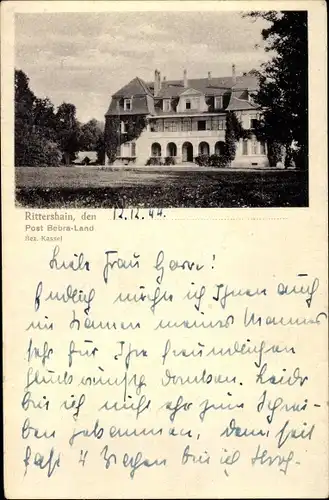 Rittershain, den 12.12.44.
Post Bebra-Land
Bez. Kassel
Liebe Frau Garve!
Endlich möchte ich Ihnen auch
im Namen meines Mannes
sehr für Ihre freundlichen
Glückwünsche danken. Leider
bin ich nicht eher zum Schrei-
ben gekommen, denn seit
fast 4 Wochen bin ich